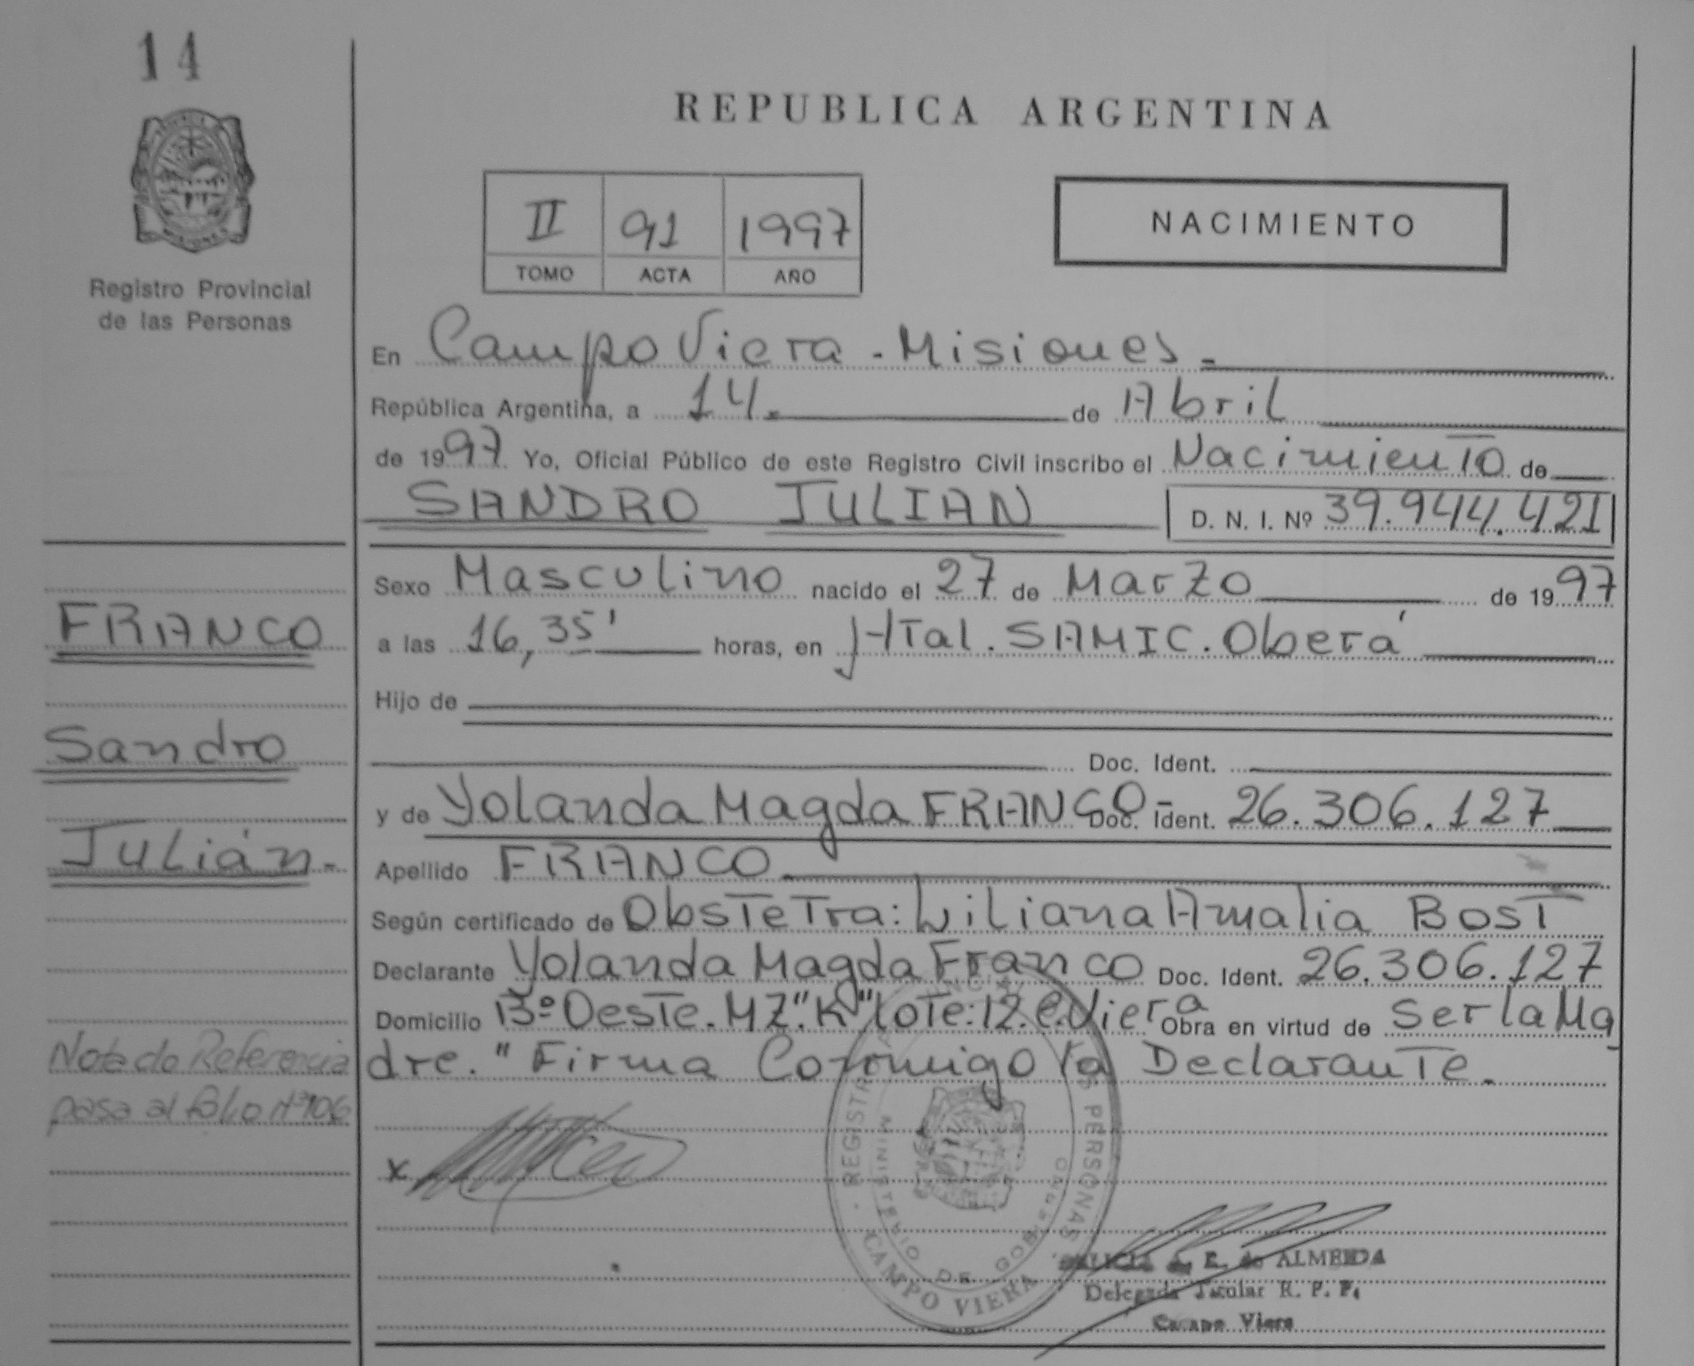 14
REPUBLICA ARGENTINA
II 91 1997
TOMO ACTA AÑO
NACIMIENTO
Registro Provincial
de las Personas
En Campo Viera - Misiones -
República Argentina, a 14. de Abril
de 1997. Yo, Oficial Público de este Registro Civil inscribo el Nacimiento de
SANDRO JULIAN D. N. I. Nº 39.944.421
Sexo Masculino nacido el 27 de Marzo de 1997
a las 16,35' horas, en Htal. SAMIC. Oberá
Hijo de
Doc. Ident.
y de Yolanda Magda FRANCO - Doc. Ident. 26.306.127
Apellido FRANCO
Según certificado de Obstetra: Liliana Amalia BOST
Declarante Yolanda Magda Franco Doc. Ident. 26.306.127
Domicilio Bº Oeste. MZ "K" Lote: 12. C. Viera Obra en virtud de Ser la Ma
dre. " Firma Conmigo la Declarante.
FRANCO
Sandro
Julián -
Nota de Referencia
pasa al folio Nº 106
x
REGISTRO PROVINCIAL DE LAS PERSONAS
MINISTERIO DE GOBIERNO
CAMPO VIERA
ALICIA E. de ALMEIDA
Delegada Titular R. P. P.
Campo Viera